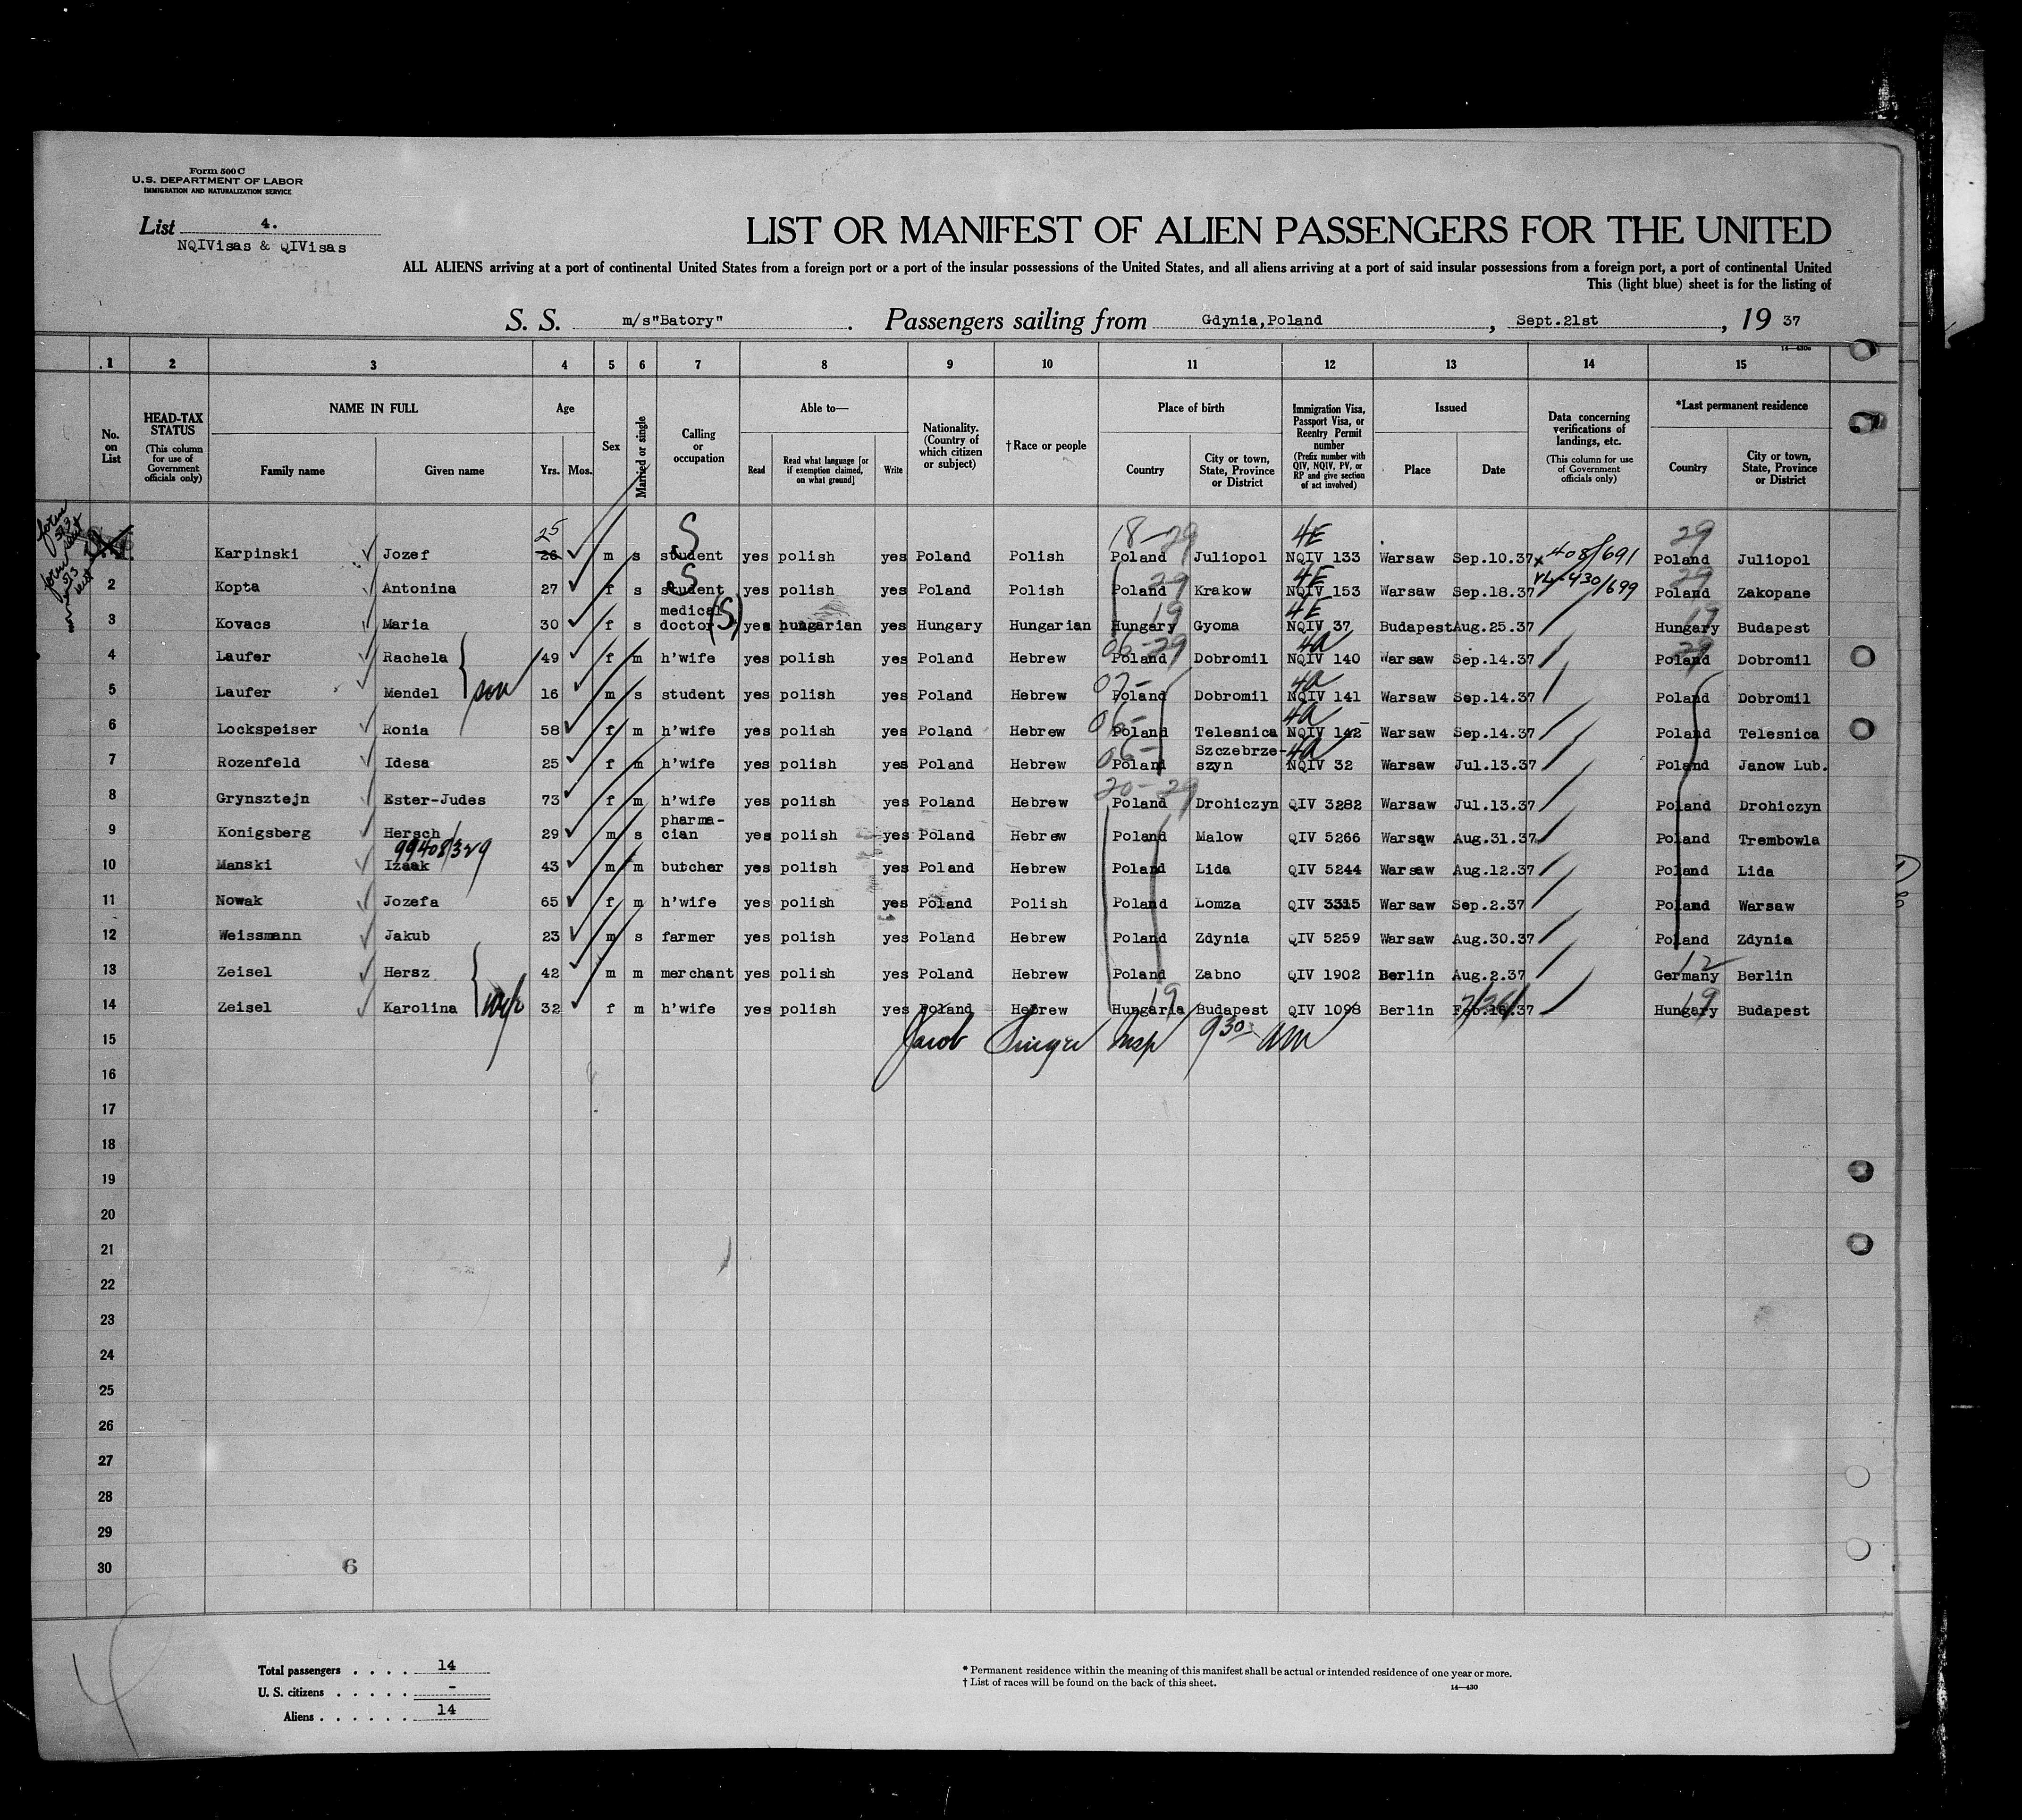 Form 500 C
U.S. DEPARTMENT OF LABOR
IMMIGRATION AND NATURALIZATION SERVICE
List 4.
NQIVisas & QIVisas
LIST OR MANIFEST OF ALIEN PASSENGERS FOR THE UNITED
ALL ALIENS arriving at a port of continental United States from a foreign port or a port of the insular possessions of the United States, and all aliens arriving at a port of said insular possessions from a foreign port, a port of continental United
This (light blue) sheet is for the listing of
S. S. m/s"Batory" . Passengers sailing from Gdynia,Poland , Sept.21st , 19 37
14—430a
1 2 3 4 5 6 7 8 9 10 11 12 13 14 15
No. on List
HEAD-TAX STATUS
(This column for use of Government officials only)
NAME IN FULL
Family name Given name
Age
Yrs. Mos.
Sex
Married or single
Calling or occupation
Able to—
Read Read what language [or if exemption claimed, on what ground] Write
Nationality. (Country of which citizen or subject)
†Race or people
Place of birth
Country City or town, State, Province or District
Immigration Visa, Passport Visa, or Reentry Permit number
(Prefix number with QIV, NQIV, PV, or RP and give section of act involved)
Issued
Place Date
Data concerning verifications of landings, etc.
(This column for use of Government officials only)
*Last permanent residence
Country City or town, State, Province or District
25 S 18-29 4E 29
Karpinski Jozef 26 m s student yes polish yes Poland Polish Poland Juliopol NQIV 133 Warsaw Sep.10.37 x 408/691 Poland Juliopol
S 29 4E 29
2 Kopta Antonina 27 f s student yes polish yes Poland Polish Poland Krakow NQIV 153 Warsaw Sep.18.37 430/699 Poland Zakopane
19 4E 19
3 Kovacs Maria 30 f s medical doctor (S) yes hungarian yes Hungary Hungarian Hungary Gyoma NQIV 37 Budapest Aug.25.37 Hungary Budapest
06-29 4a 29
4 Laufer Rachela 49 f m h'wife yes polish yes Poland Hebrew Poland Dobromil NQIV 140 Warsaw Sep.14.37 Poland Dobromil
07- 4a
5 Laufer Mendel son 16 m s student yes polish yes Poland Hebrew Poland Dobromil NQIV 141 Warsaw Sep.14.37 Poland Dobromil
06- 4a
6 Lockspeiser Ronia 58 f m h'wife yes polish yes Poland Hebrew Poland Telesnica NQIV 142 Warsaw Sep.14.37 Poland Telesnica
06- 4a
7 Rozenfeld Idesa 25 f m h'wife yes polish yes Poland Hebrew Poland Szczebrze-szyn NQIV 32 Warsaw Jul.13.37 Poland Janow Lub.
20-29
8 Grynsztejn Ester-Judes 73 f m h'wife yes polish yes Poland Hebrew Poland Drohiczyn QIV 3282 Warsaw Jul.13.37 Poland Drohiczyn
9 Konigsberg Hersch 29 m s pharma-cian yes polish yes Poland Hebrew Poland Malow QIV 5266 Warsaw Aug.31.37 Poland Trembowla
99408/329
10 Manski Izaak 43 m m butcher yes polish yes Poland Hebrew Poland Lida QIV 5244 Warsaw Aug.12.37 Poland Lida
11 Nowak Jozefa 65 f m h'wife yes polish yes Poland Polish Poland Lomza QIV 3315 Warsaw Sep.2.37 Poland Warsaw
12 Weissmann Jakub 23 m s farmer yes polish yes Poland Hebrew Poland Zdynia QIV 5259 Warsaw Aug.30.37 Poland Zdynia
12
13 Zeisel Hersz 42 m m merchant yes polish yes Poland Hebrew Poland Zabno QIV 1902 Berlin Aug.2.37 Germany Berlin
19 19
14 Zeisel Karolina wife 32 f m h'wife yes polish yes Poland Hebrew Hungaria Budapest QIV 1098 Berlin Feb.18.37 Hungary Budapest
15 Jacob Singer Insp 9 30 AM
16
17
18
19
20
21
22
23
24
25
26
27
28
29
30 6
Total passengers . . . . 14
U. S. citizens . . . . . -
Aliens . . . . . . 14
* Permanent residence within the meaning of this manifest shall be actual or intended residence of one year or more.
† List of races will be found on the back of this sheet.
14—430